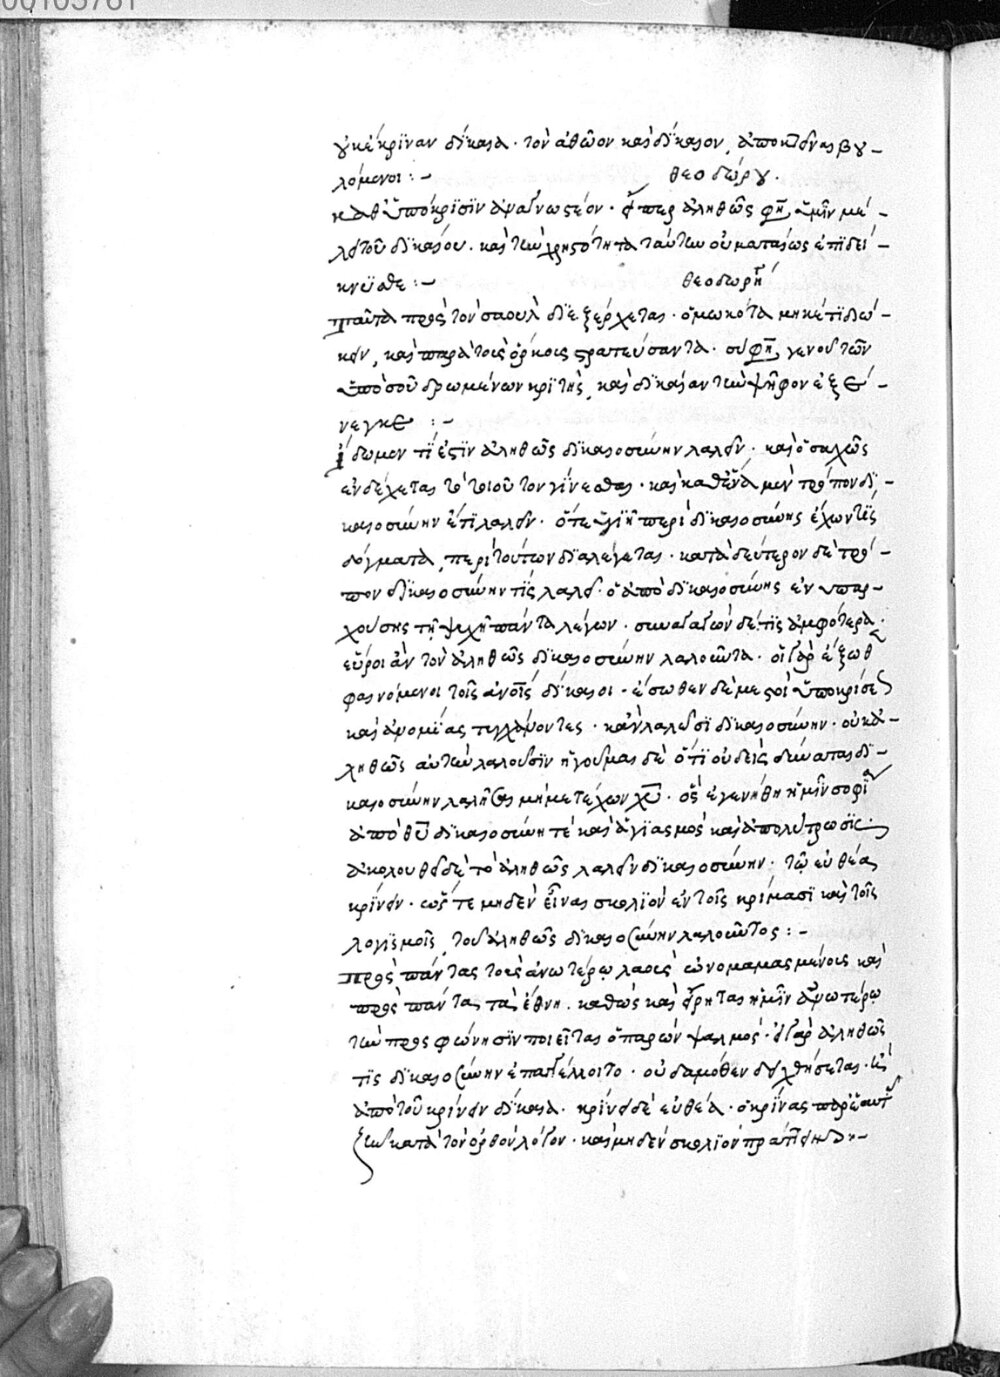 00105761
οὐ κέκριναν δίκαια· τὸν ἀθῶον καὶ δίκαιον, ἀποκτεῖναι βου–
λόμενοι:– θεοδώρου.
καθ' ὑπόκρισιν ἀναγνωστέον· εἴπερ ἀληθῶς φη, ὑμῖν μέ–
λει τοῦ δικαίου. καὶ τὴν χρηστότητα ταύτην οὐ ματαίως ἐπιδεί–
κνυσθε:– θεοδωρή
ταῦτα πρὸς τὸν σαοὺλ διεξέρχεται· ὀμωκότα μηκέτι διώ–
κειν, καὶ παρὰ τοὺς ὅρκους στρατεύσαντα· σὺ φη, γενοῦ τῶν
ὑπὸ σοῦ δρωμένων κριτὴς, καὶ δικαίαν τὴν ψῆφον ἐξέ–
νεγκε:–
ἴδωμεν τί ἐστιν ἀληθῶς δικαιοσύνην λαλεῖν· καὶ ὁσαχῶς
ἐνδέχεται τὸ τοιοῦτον γίνεσθαι· καὶ καθ' ἕνα μὲν τρόπον δι–
καιοσύνην ἐστὶ λαλεῖν· ὅτε ὑγιῆ περὶ δικαιοσύνης ἔχων τις
δόγματα, περὶ τούτων διαλέγεται· κατὰ δεύτερον δὲ τρό–
πον δικαιοσύνην τὶς λαλεῖ· ὁ ἀπὸ δικαιοσύνης ἐνυπαρ–
χούσης τῇ ψυχῇ πάντα λέγων· συναγαγὼν δέ τις ἀμφότερα·
εὕροι ἂν τὸν ἀληθῶς δικαιοσύνην λαλοῦντα· οἱ γὰρ ἔξωθ
φαινόμενοι τοῖς ἀνοις δίκαιοι· ἔσωθεν δὲ μεστοὶ ὑποκρίσε
καὶ ἀνομίας τυγχάνοντες· κἂν λαλῶσι δικαιοσύνην· οὐκ ἀ–
ληθῶς αὐτὴν λαλοῦσιν ἡγοῦμαι δὲ ὅτι οὐδεὶς δύναται δι–
καιοσύνην λαλῆσαι μὴ μετέχων χυ· ὃς ἐγενήθη ἡμῖν σοφία
ἀπὸ θυ δικαιοσύνη τὲ καὶ ἁγιασμὸς καὶ ἀπολύτρωσις·
ἀκολουθεῖ δὲ τὸ ἀληθῶς λαλεῖν δικαιοσύνην· τῷ εὐθέα
κρίνειν· ὥς τε μηδὲν εἶναι σκολιὸν ἐν τοῖς κρίμασι καὶ τοῖς
λογισμοῖς, τοῦ ἀληθῶς δικαιοσύνην λαλοῦντος:–
πρὸς πάντας τοὺς ἀνωτέρω λαοὺς ὠνομαμασμένοις καὶ
πρὸς πάντα τὰ ἔθνη. καθὼς καὶ εἴρηται ἡμῖν ἀνωτέρω
τὴν προσφώνησιν ποιεῖται ὁ παρὼν ψαλμός· εἰ γὰρ ἀληθῶς
τὶς δικαιοσύνην ἐπαγέλλοιτο· οὐδαμόθεν δειχθήσεται· εἰ
ἀπὸ τοῦ κρίνειν δίκαια· κρίνει δὲ εὐθεῖα· ὁ κρίνας παρ' ἑαυτῷ
ζῆν κατὰ τὸν ὀρθὸν λόγον· καὶ μηδὲν σκολιὸν πράττειν:–